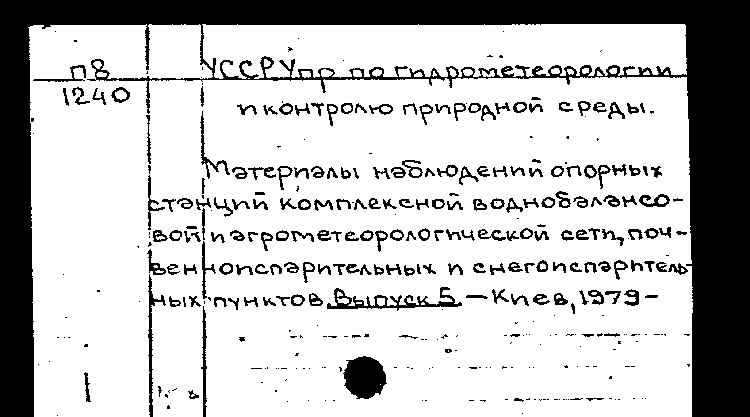 п8
1240
УССР Упр по гидрометеорологии
и контролю природной среды.
Материалы наблюдений опорных
станций комплексной воднобалансо-
вой и агрометеорологической сети, поч-
венноиспарительных и снегоиспаритель-
ных пунктов. Выпуск 5. — Киев, 1979-